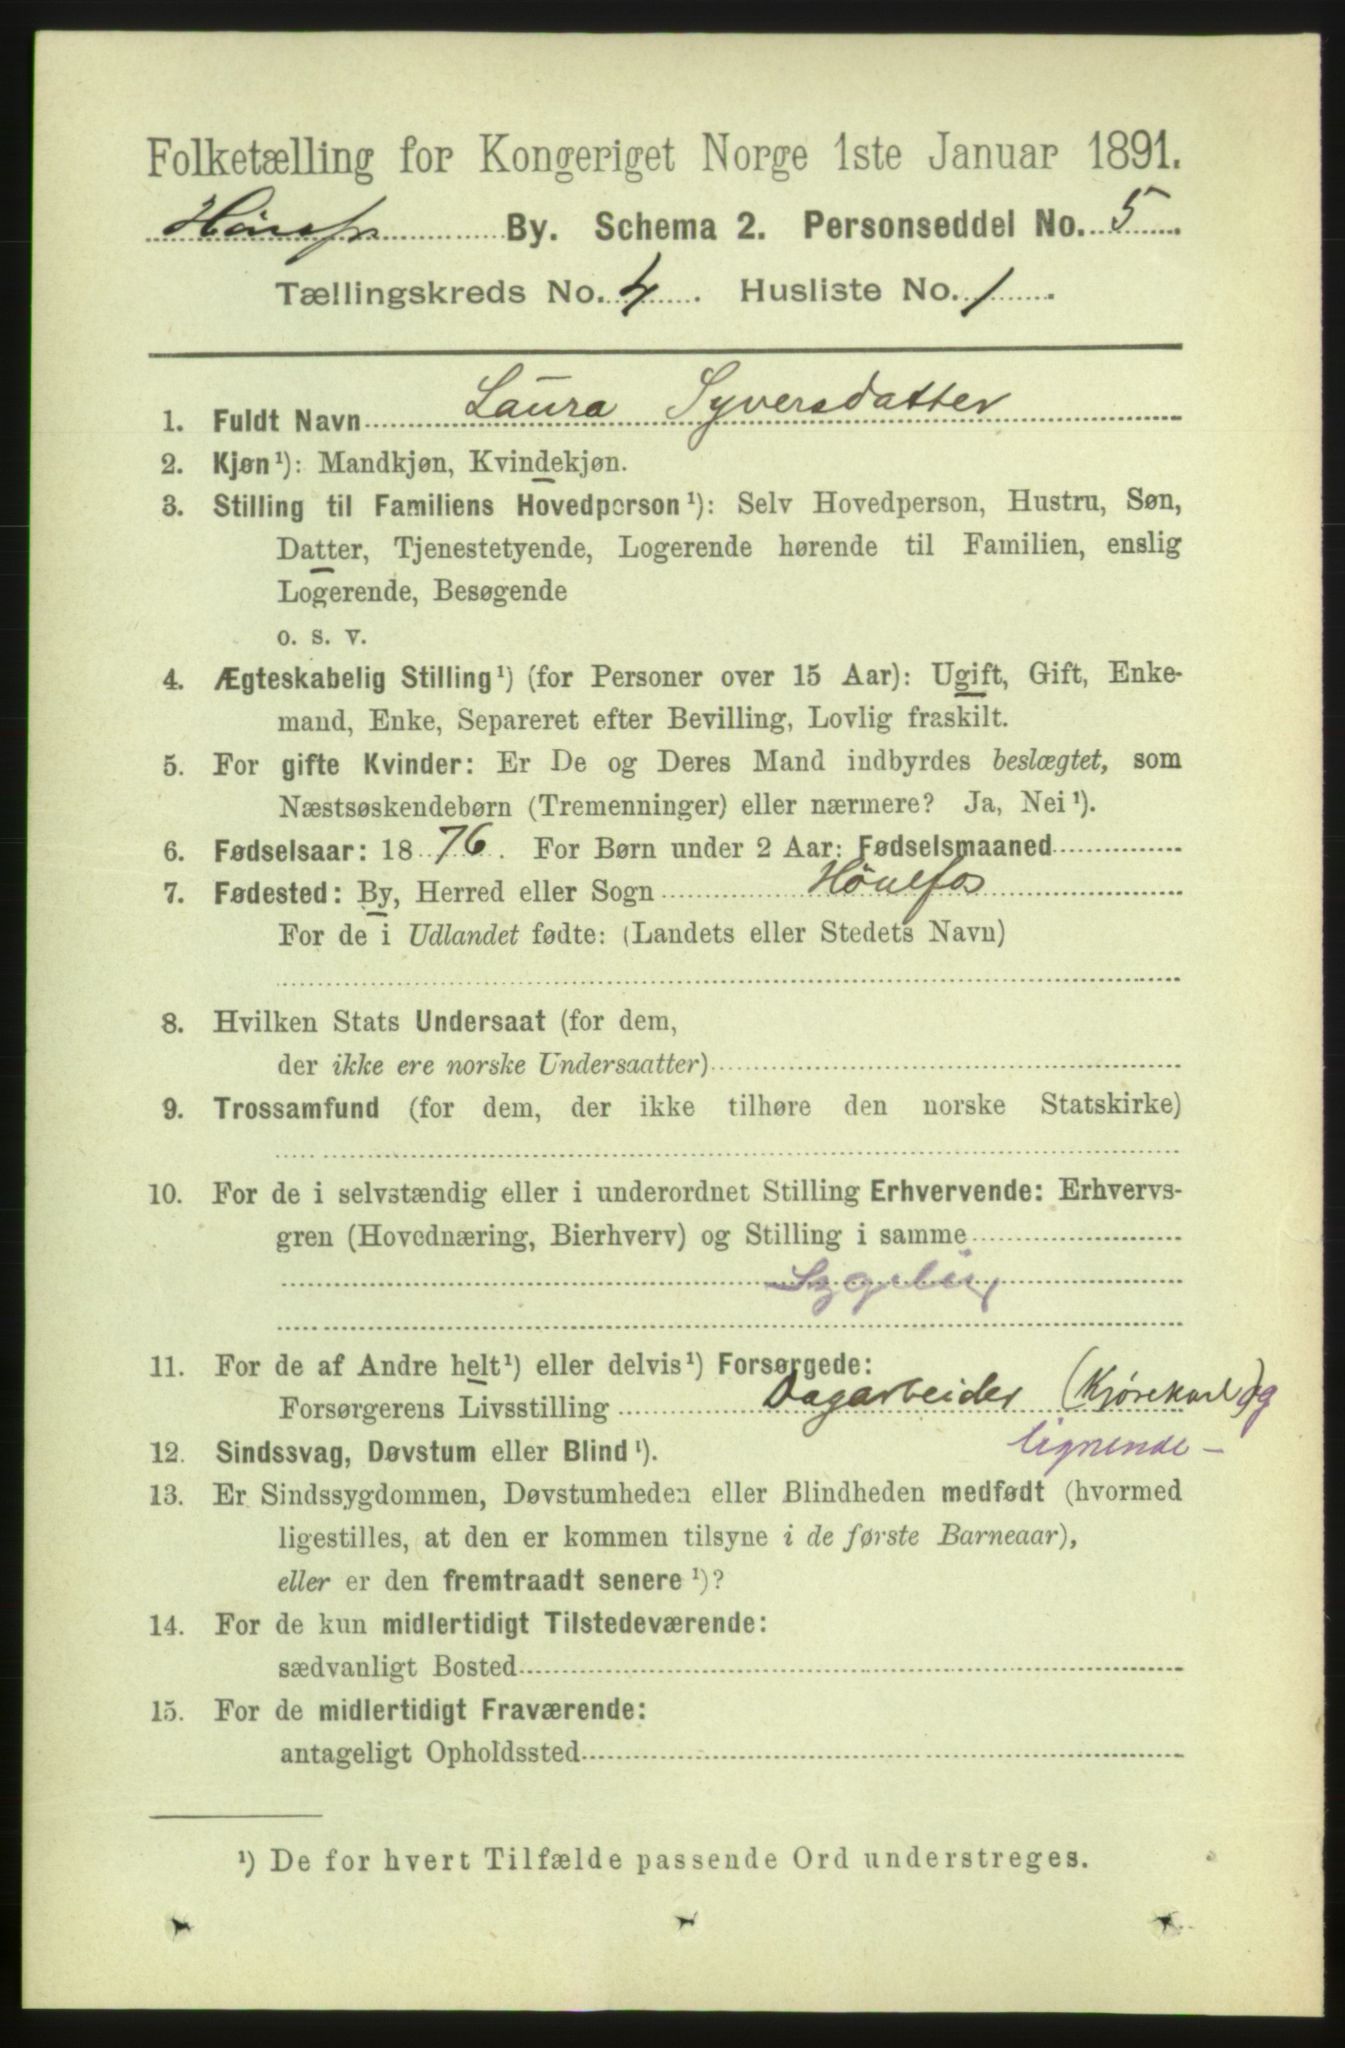 Folketælling for Kongeriget Norge 1ste Januar 1891.
Hønefos By. Schema 2. Personseddel No. 5
Tællingskreds No. 4. Husliste No. 1.
1. Fuldt Navn Laura Syversdatter
2. Kjøn¹): Mandkjøn, Kvindekjøn.
3. Stilling til Familiens Hovedperson¹): Selv Hovedperson, Hustru, Søn,
Datter, Tjenestetyende, Logerende hørende til Familien, enslig
Logerende, Besøgende
o. s. v.
4. Ægteskabelig Stilling¹) (for Personer over 15 Aar): Ugift, Gift, Enke-
mand, Enke, Separeret efter Bevilling, Lovlig fraskilt.
5. For gifte Kvinder: Er De og Deres Mand indbyrdes beslægtet, som
Næstsøskendebørn (Tremenninger) eller nærmere? Ja, Nei¹).
6. Fødselsaar: 1876. For Børn under 2 Aar: Fødselsmaaned
7. Fødested: By, Herred eller Sogn Hønefos
For de i Udlandet fødte: (Landets eller Stedets Navn)
8. Hvilken Stats Undersaat (for dem,
der ikke ere norske Undersaatter)
9. Trossamfund (for dem, der ikke tilhøre den norske Statskirke)
10. For de i selvstændig eller i underordnet Stilling Erhvervende: Erhvervs-
gren (Hovednæring, Bierhverv) og Stilling i samme
11. For de af Andre helt¹) eller delvis¹) Forsørgede:
Forsørgerens Livsstilling Dagarbeider (Kjørekarl) og
lignende -
12. Sindssvag, Døvstum eller Blind¹).
13. Er Sindssygdommen, Døvstumheden eller Blindheden medfødt (hvormed
ligestilles, at den er kommen tilsyne i de første Barneaar),
eller er den fremtraadt senere¹)?
14. For de kun midlertidigt Tilstedeværende:
sædvanligt Bosted
15. For de midlertidigt Fraværende:
antageligt Opholdssted
¹) De for hvert Tilfælde passende Ord understreges.